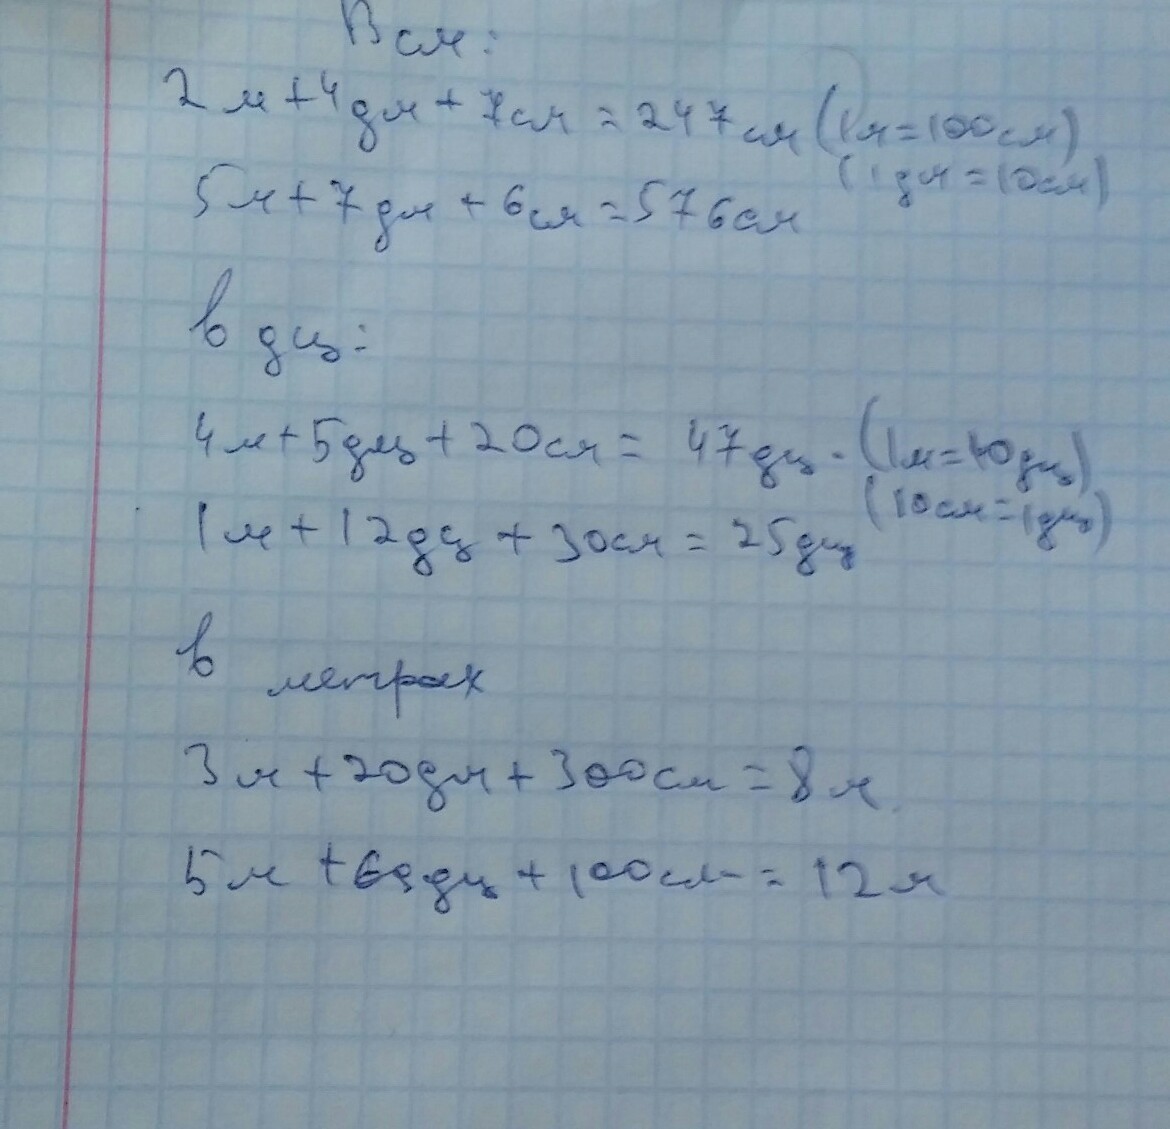 В см:
2 м + 4 дм + 7 см = 247 см (1 м = 100 см)
(1 дм = 10 см)
5 м + 7 дм + 6 см = 576 см
в дц:
4 м + 5 дц + 20 см = 47 дц. (1 м = 10 дц)
(10 см = 1 дц)
1 м + 12 дц + 30 см = 25 дц
в метрах
3 м + 20 дм + 300 см = 8 м.
5 м + 60 дц + 100 см = 12 м